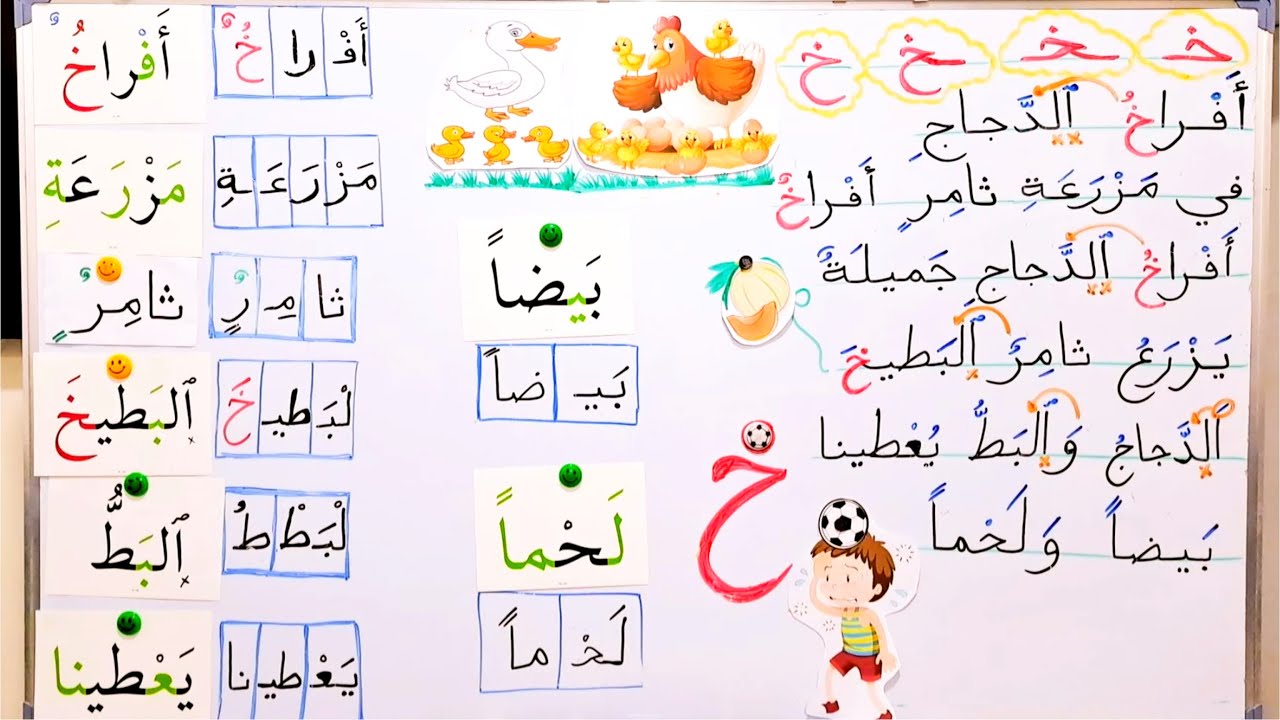 خـ ـخـ ـخ خ
أَفْراخُ ٱلِدَّجاجِ
في مَزْرَعَةِ ثامِرٍ أَفْراخٌ
أَفْراخُ ٱلِدَّجاجِ جَميلَةٌ
يَزْرَعُ ثامِرٌ ٱلْبَطيخَ
اَلِدَّجاجُ وَٱلِبَطُّ يُعْطينا
بَيضاً وَلَحْماً
خ
بَيضاً
بَيـ ضاً
لَحْماً
لَحْـ ماً
أَفْراخُ
أَفْـ را خُ
مَزْرَعَةِ
مَزْ رَ عَـ ـةِ
ثامِرٌ
ثا مِـ رٌ
ٱلبَطيخَ
لْبَـ طيـ خَ
ٱلبَطُّ
لْبَـ طْ طُ
يَعْطينا
يَعْـ طيـ نا